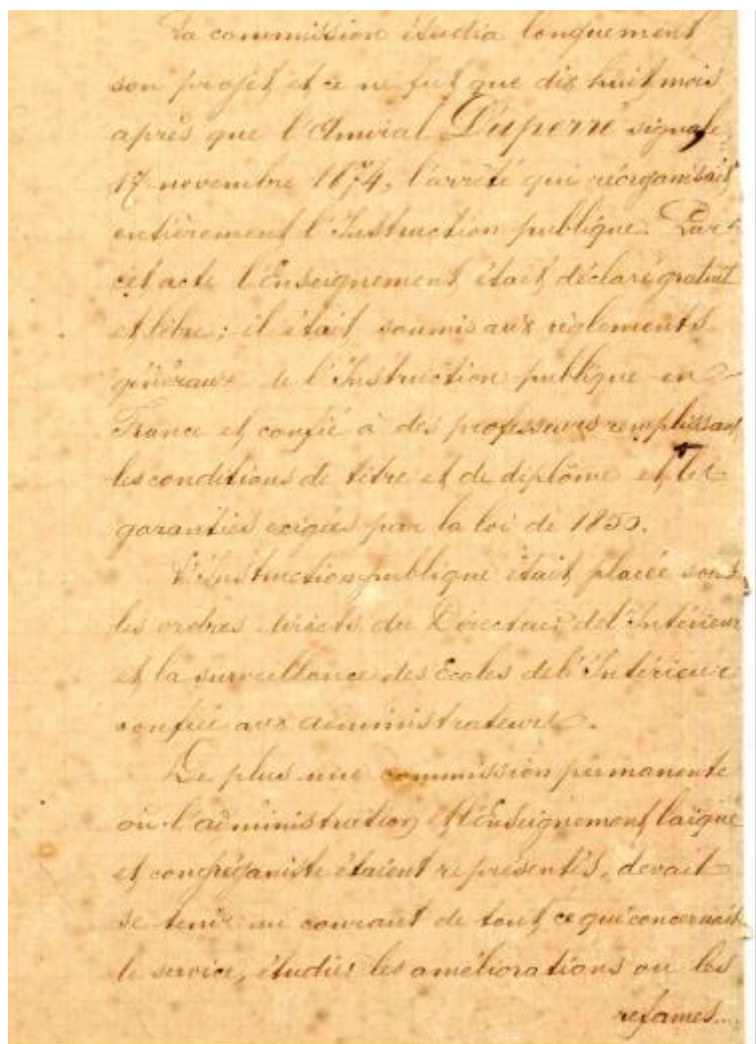 La commission étudia longuement
son projet et ce ne fut que dix huit mois
après que l'Amiral Duperré signale
17 novembre 1874, l'arrêté qui réorganisait
entièrement l'Instruction publique. Par
cet acte l'Enseignement était déclaré gratuit
et libre : il était soumis aux règlements
généraux de l'Instruction publique en
France et confié à des professeurs remplissant
les conditions de titre et de diplôme et les
garanties exigées par la loi de 1850.
L'Instruction publique était placée sous
les ordres directs du Directeur de l'Intérieur
et la surveillance des Ecoles de l'Intérieure
confiée aux administrateurs.
De plus une commission permanente
où l'administration et l'Enseignement laïque
et congréganiste étaient représentés, devait
se tenir au courant de tout ce qui concernait
le service, étudier les améliorations ou les
reformes...